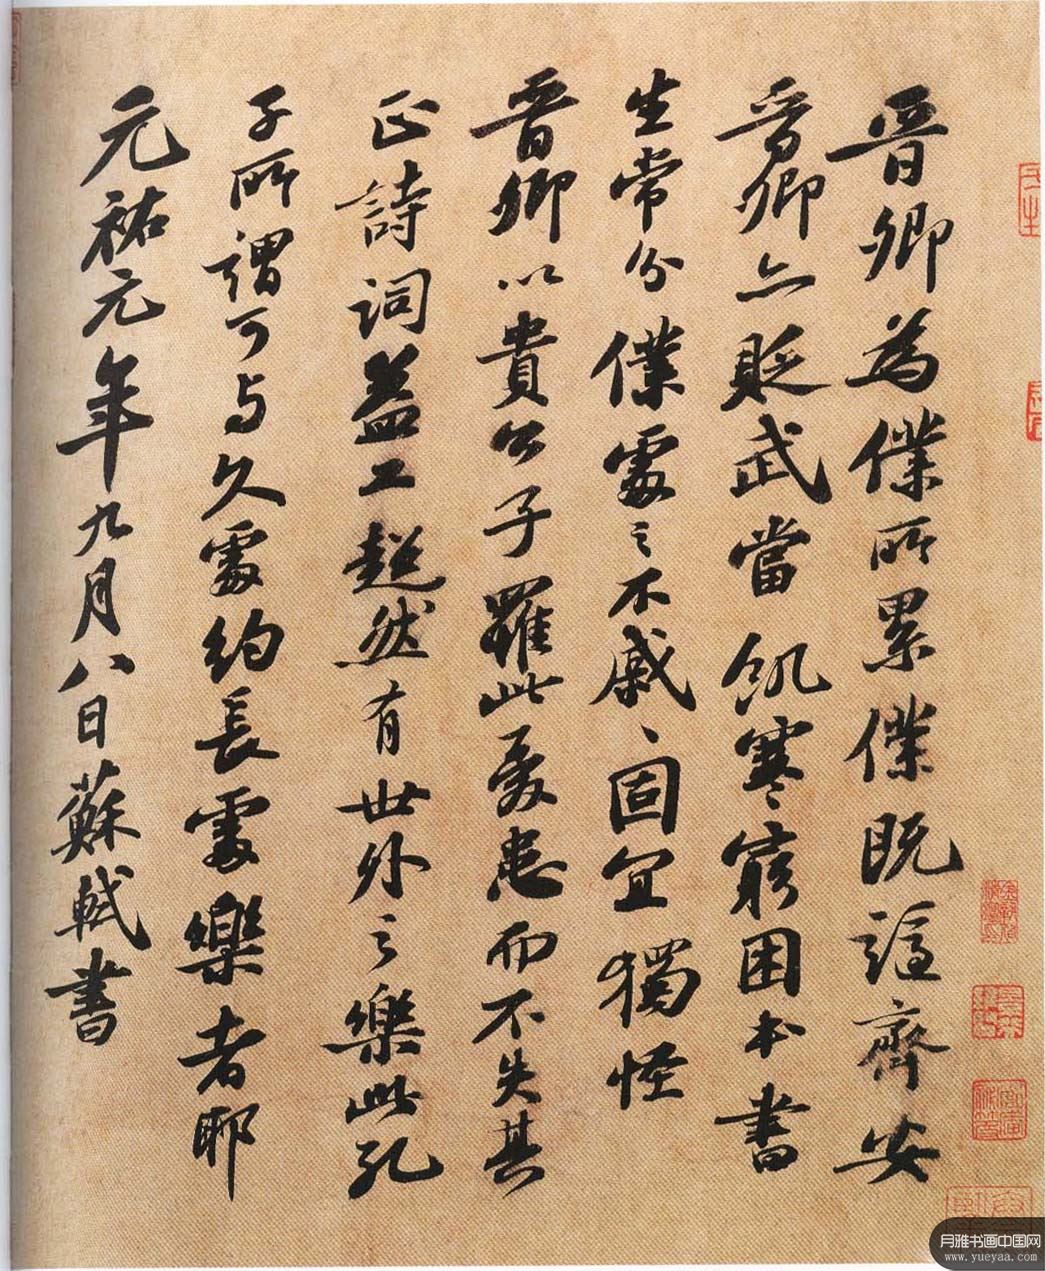 晉卿為僕所累僕既謫齊安
晉卿亦貶武當飢寒窮困本書
生常分僕處之不戚、固宜獨怪
晉卿以貴公子罹此憂患而不失其
正詩詞益工超然有世外之樂此孔
子所謂可与久處約長處樂者耶
元祐元年九月八日蘇軾書
月雅书画中国网
www.yueyaa.com